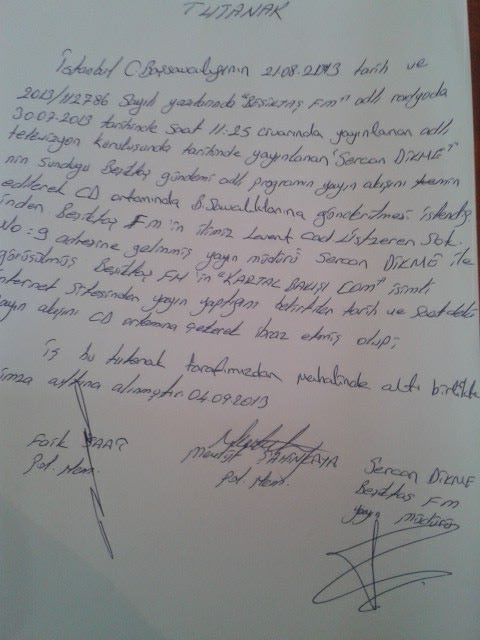 TUTANAK
İstanbul C.Başsavcılığının 21.08.2013 tarih ve
2013/112786 Sayılı yazılarında "BEŞİKTAŞ FM" adlı radyoda
30.07.2013 tarihinde saat 11:25 civarında yayınlanan adlı
televizyon kuruluşunda tarihinde yayınlanan "Sercan DİKME"
nin sunduğu Beşiktaş gündemi adlı programın yayın akışını temin
edilerek CD ortamında B.Savcılıklarına gönderilmesi istendiği
inden Beşiktaş FM'in ilimiz Levent Cad. Sok.
No:9 adresine gelinmiş yayın müdürü Sercan DİKME ile
görüşülmüş Beşiktaş FM'in "KARTAL BAKIŞI COM" isimli
internet sitesinden yayın yaptığını belirtilen tarih ve saatdeki
yayın akışını CD ortamına çekerek ibraz etmiş olup;
iş bu tutanak tarafımızdan mahalinde altı birlikte
imza altına alınmıştır 04.09.2013
Faik SAAT
Pol. Mem.
Mevlüt ŞAHİNKAYA
Pol. Mem.
Sercan DİKME
Beşiktaş FM
yayın müdürü